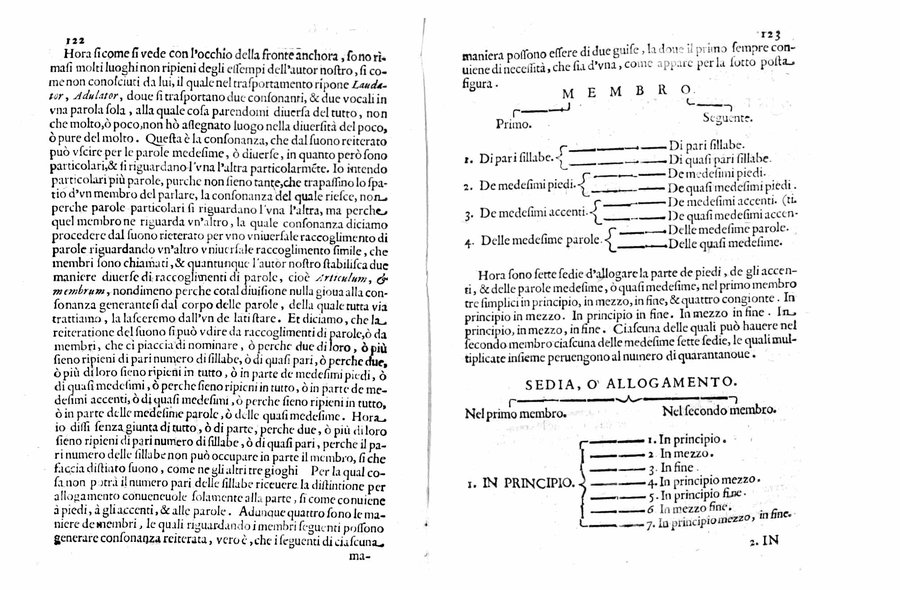 122
Hora ſi come ſi vede con l'occhio della fronte anchora, ſono ri-
maſi molti luoghi non ripieni degli eſſempi dell'autor noſtro, ſi co-
me non conoſciuti da lui, il quale nel traſportamento ripone Lauda-
tor, Adulator, doue ſi traſportano due conſonanti, & due vocali in
vna parola ſola, alla quale coſa parendomi diuerſa del tutto, non
che molto, ò poco, non hò aſſegnato luogo nella diuerſità del poco,
ò pure del molto. Queſta è la conſonanza, che dal ſuono reiterato
può vſcire per le parole medeſime, ò diuerſe, in quanto però ſono
particolari, & ſi riguardano l'vna l'altra particolarmẽte. Io intendo
particolari più parole, purche non ſieno tante, che trapaſſino lo ſpa-
tio d'vn membro del parlare, la conſonanza del quale rieſce, non
perche parole particolari ſi riguardano l'vna l'altra, ma perche
quel membro ne riguarda vn'altro, la quale conſonanza diciamo
procedere dal ſuono rieterato per vno vniuerſale raccoglimento di
parole riguardando vn'altro vniuerſale raccoglimento ſimile, che
membri ſono chiamati, & quantunque l'autor noſtro ſtabiliſca due
maniere diuerſe di raccoglimenti di parole, cioè Articulum, &
membrum, nondimeno perche cotal diuiſione nulla gioua alla con-
ſonanza generanteſi dal corpo delle parole, della quale tutta via
trattiamo, la laſceremo dall'vn de lati ſtare. Et diciamo, che la
reiteratione del ſuono ſi può vdire da raccoglimenti di parole, ò da
membri, che ci piaccia di nominare, ò perche due di loro, ò più
ſieno ripieni di pari numero di ſillabe, ò di quaſi pari, ò perche due,
ò più di loro ſieno ripieni in tutto, ò in parte de medeſimi piedi, ò
di quaſi medeſimi, ò perche ſieno ripieni in tutto, ò in parte de me-
deſimi accenti, ò di quaſi medeſimi, ò perche ſieno ripieni in tutto,
ò in parte delle medeſime parole, ò delle quaſi medeſime. Hora
io diſſi ſenza giunta di tutto, ò di parte, perche due, ò più di loro
ſieno ripieni di pari numero di ſillabe, ò di quaſi pari, perche il pa-
ri numero delle ſillabe non può occupare in parte il membro, ſi che
faccia diſtiato ſuono, come ne gli altri tre gioghi Per la qual co-
ſa non potrà il numero pari delle ſillabe riceuere la diſtintione per
allogamento conueneuole ſolamente alla parte, ſi come conuiene
à piedi, à gli accenti, & alle parole. Adunque quattro ſono le ma-
niere de membri, le quali riguardando i membri ſeguenti poſſono
generare conſonanza reiterata, vero è, che i ſeguenti di ciaſcuna
ma-
123
maniera poſſono eſſere di due guiſe, la doue il primo ſempre con-
uiene di neceſſità, che ſia d'vna, come appare per la ſotto poſta
figura.
MEMBRO.
Primo. Seguente.
1. Di pari ſillabe. Di pari ſillabe.
Di quaſi pari ſillabe.
2. De medeſimi piedi. De medeſimi piedi.
De quaſi medeſimi piedi.
3. De medeſimi accenti. De medeſimi accenti. (ti.
De quaſi medeſimi accen-
4. Delle medeſime parole. Delle medeſime parole.
Delle quaſi medeſime.
Hora ſono ſette ſedie d'allogare la parte de piedi, de gli accen-
ti, & delle parole medeſime, ò quaſi medeſime, nel primo membro
tre ſimplici in principio, in mezzo, in fine, & quattro congionte. In
principio in mezzo. In principio in fine. In mezzo in fine. In
principio, in mezzo, in fine. Ciaſcuna delle quali può hauere nel
ſecondo membro ciaſcuna delle medeſime ſette ſedie, le quali mul-
tiplicate inſieme peruengono al numero di quarantanoue.
SEDIA, O' ALLOGAMENTO.
Nel primo membro. Nel ſecondo membro.
1. In principio.
2. In mezzo.
3. In fine.
1. IN PRINCIPIO. 4. In principio mezzo.
5. In principio fine.
6. In mezzo fine.
7. In principio mezzo, in fine.
2. IN